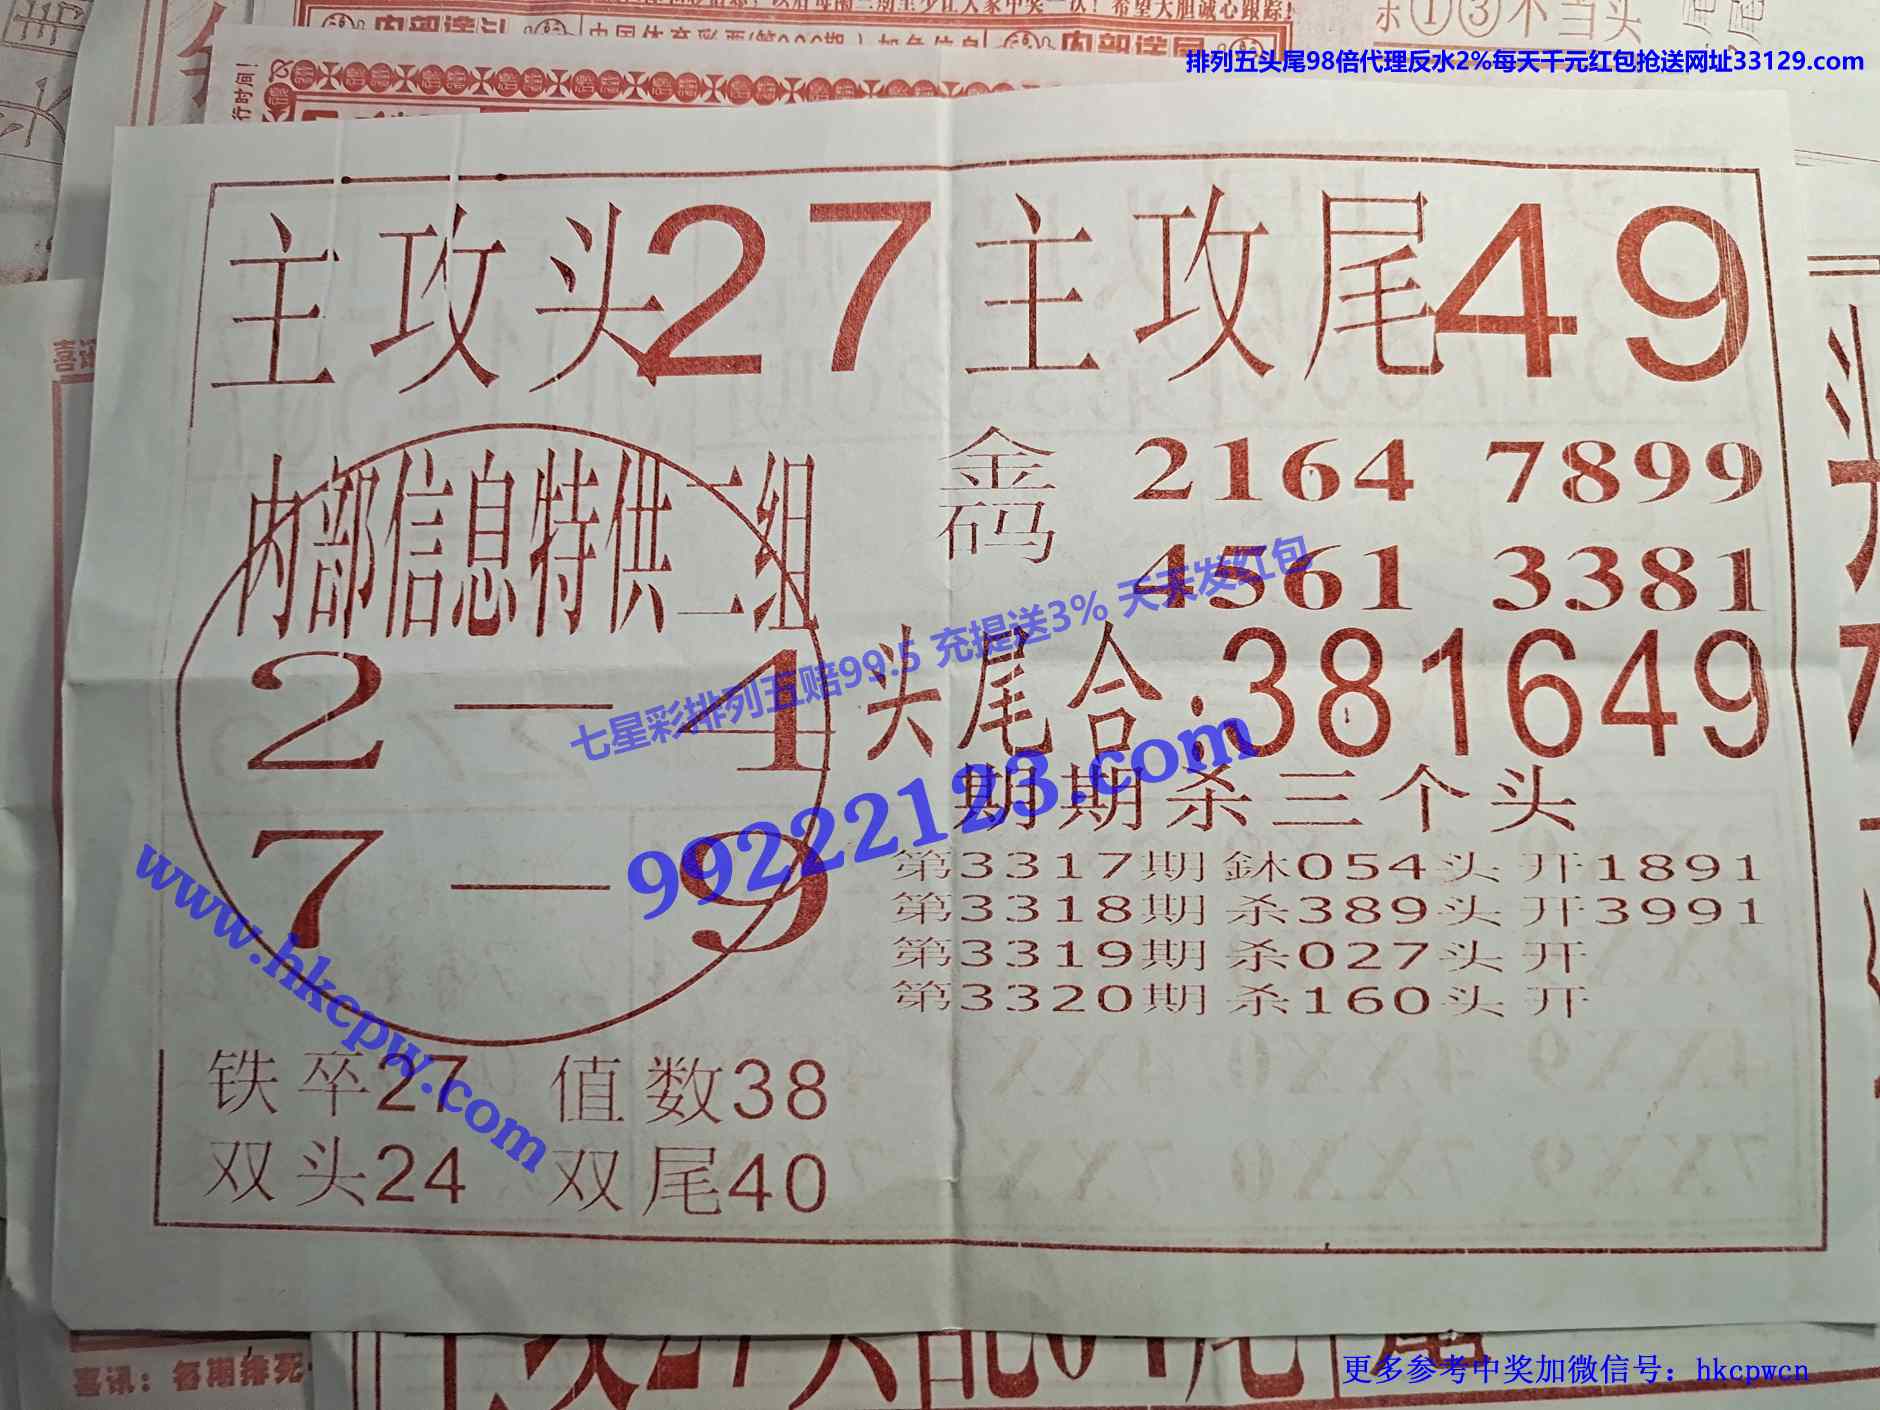 希望大胆诚心跟踪
不当头
内部送尾
排列五头尾98倍代理反水2%每天千元红包抢送网址33129.com
主攻头27 主攻尾49
内部信息特供二组
2—4
7—9
金码 2164 7899
4561 3381
七星彩排列五赔99.5 充提送3% 天天发红包
头尾合:381649
99222123.com
期期杀三个头
第3317期 鉌054头 开1891
第3318期 杀389头 开3991
第3319期 杀027头 开
第3320期 杀160头 开
www.hkcpw.com
铁卒27 值数38
双头24 双尾40
喜讯:每期排死
更多参考中奖加微信号:hkcpwcn